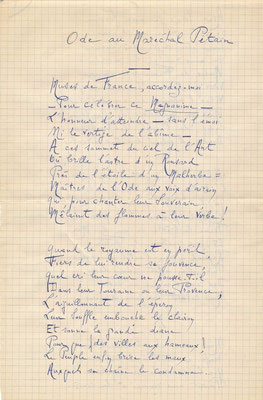 Ode au Maréchal Pétain
Muses de France, accordez-moi
— Pour célébrer ce Magnanime —
L'honneur d'atteindre — sans l'émoi
Ni le vertige de l'abîme —
A ces sommets du ciel de l'Art
Où brille l'astre d'un Ronsard
Près de l'étoile d'un Malherbe =
Maîtres de l'Ode aux voix d'airain
Qui, pour chanter leur Souverain,
Mêlaient des flammes à leur Verbe!
Quand le royaume est en péril,
Fiers de lui rendre sa jouvence
Quel cri leur cœur ne pousse-t-il
Dans leur Touraine ou leur Provence,
L'aiguillonnant de l'
Leur souffle embouche le clairon
Et sonne la grande diane
Pour que (des villes aux hameaux)
Le Peuple enfin brise les maux
Auxquels sa chaîne le condamne.